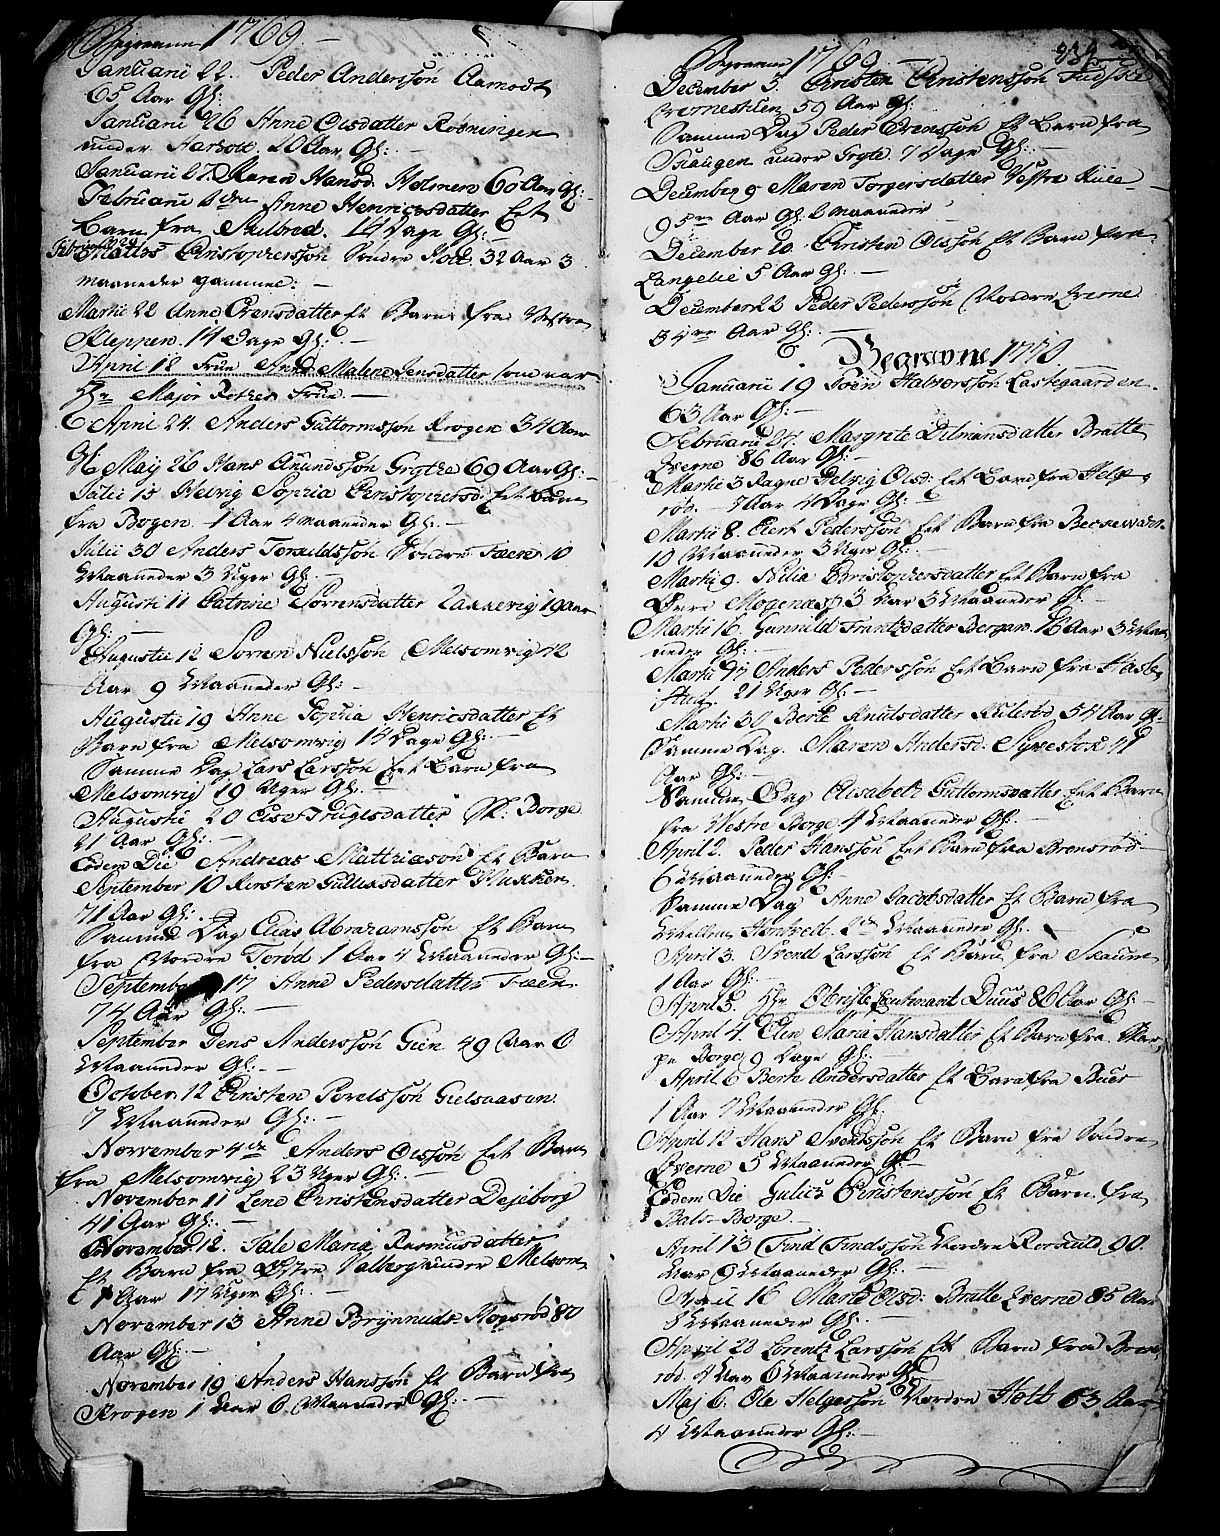 Begravne 1769
Januarii 22. Peder Anderssøn Aamodt
65 Aar Gl:
Januarii 26 Anne Olsdatter Røsningen
under 20 Aar Gl:
Januarii 27. Karen Hansd. Holmen 60 Aar Gl:
Februarii Anne Henricsdatter Eet
Barn fra 14 Dage Gl:
Februarii Christophersøn Søndre 32 Aar 3
maaneder gammel.
Martii 22 Anne Evensdatter Et Barn fra Vestre
Kleppen. 14 Dage Gl:
April 18 Frue Anna Malene Jensdatter som var
Hr Major Frue
April 24. Anders Guttormssøn Krogen 34 Aar
Gl. May 26 Hans Amundssøn Grytte 69 Aar Gl:
Julii 15 Helvig Sophia Christophersd: Eet Barn
fra Bogen 1 Aar 4 maaneder Gl:
Julii 30 Anders Søndre Faen 10
Maaneder 3 Uger Gl:
Augusti 11 Cathrine Sørrensdatter 19 Aar
Gl:
Augustii 12 Sørren Nielssøn Melsomvig 72
Aar 9 Maaneder Gl:
Augustii 19 Anne Sophia Henricsdatter Et
Barn fra Melsomvig 14 Dage Gl:
Samme Dag Lars Larssøn Eet Barn fra
Melsomvig 19 Uger Gl:
Augusti 20 Trugelsdatter Borge
21 Aar Gl:
Eodem Die Andreas Matthiasøn Et Barn
September 10 Kirsten Gulliksdatter
71 Aar Gl:
Samme Dag Elias Abrahamssøn Et Barn
fra Nordre Torød 1 Aar 4 Maaneder Gl:
September 17 Anne Pedersdatter Faen
74 Aar Gl:
September Jens Anderssøn Gien 49 Aar 6
Maaneder Gl:
October 12 Christen
7 Maaneder Gl:
November 4de Anders Olssøn Eet Barn
fra Melsomvig 23 Uger Gl:
November 11 Lene Christensdatter
41 Aar Gl:
November 12. Maria Rasmusdatter
Et Barn fra under Melsom
1 Aar 17 Uger Gl:
November 13 Anne Brynnuds Hogsrød 80
Aar Gl:
November 19 Anders Hanssøn Et Barn fra
Krogen 1 Aar 6 Maaneder Gl:
Begravne 1769
December 3. Christen Christenssøn
59 Aar Gl:
Samme Dag Peder Evenssøn Et Barn fra
Skaugen under Grytte 7 Dage Gl:
December 9 Maren Torgersdatter Vestre
95 Aar Gl: 2 maaneder
December 20 Christen Olssøn Et Barn fra
Langelie 5 Aar Gl:
December 22 Peder Pederssøn Nordre Qverne
34 Aar Gl:
Begravne 1770
Januarii 19 Halvorssøn Lastegaarden
63 Aar Gl:
Februarii 27. Margrete Tilmansdatter Bratte
Qverne 86 Aar Gl:
Martii 3 Ragne Helvig Olsd: Eet Barn fra Helge-
rød. Aar 4 Dage Gl:
Martii 8. Pederssøn Eet Barn fra
10 Maaneder 3 Uger Gl:
Martii 9. Nilia Christophersdatter Et Barn fra
3 Aar 3 Maaneder Gl:
Martii 16. Gunnild Frantzdatter Bergan 76 Aar 3 Maa-
neder Gl:
Martii 17 Anders Pederssøn Eet Barn fra
21 Uger Gl:
Martii 30 Berte Knutsdatter 54 Aar Gl:
Samme Dag. Maren Andersd: 41
Aar Gl:
Samme Dag Elisabeth Guttormsdatter Eet Barn
fra Vestre Borge 4 Maaneder Gl:
April 2. Peder Hanssøn Eet Barn fra Brensrød
6 Maaneder Gl:
Samme Dag Anne Jacobsdatter Et Barn fra
Mellem Hontvedt 2 Maaneder Gl:
April 3. Svend Larssøn Et Barn fra
1 Aar Gl:
April 3. Hr Obristleutnant Duus 86 Aar Gl:
April 4. Elen Maria Hansdatter Et Barn fra
Borge 9 Dage Gl:
April 6 Berte Andersdatter Et Barn fra Buer
1 Aar 7 Maaneder Gl:
April 12 Hans Svendssøn Et Barn fra Søndre
Qverne 5 Maaneder Gl:
Eodem Die Christenssøn Et Barn fra
Borge
April 13 Find Findssøn Nordre 90
Aar 9 Maaneder Gl:
April 16 Marte Olsd: Bratte Qverne 85 Aar
Maaneder Gl:
April 28 Lorentz Larssøn Et Barn fra Bren-
rød. 4 Aar 6 Maaneder Gl:
Maj 6. Ole Helgerssøn Nordre Holt 63 Aar
4 Maaneder Gl: